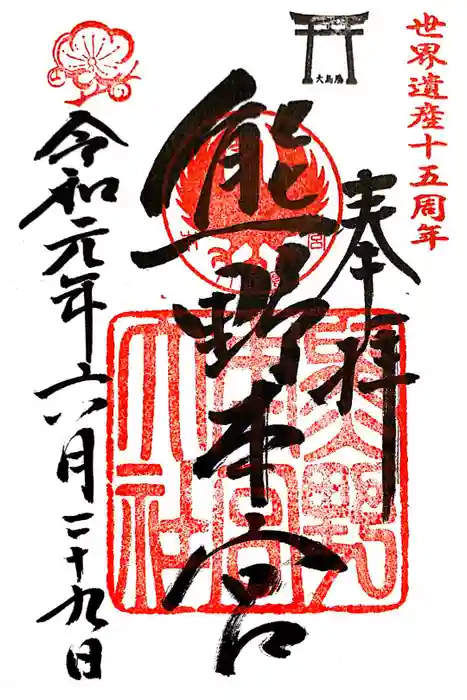 世界遺産十五周年
大鳥居
奉拝
熊野本宮
令和元年六月二十九日
熊野
本宮
大社